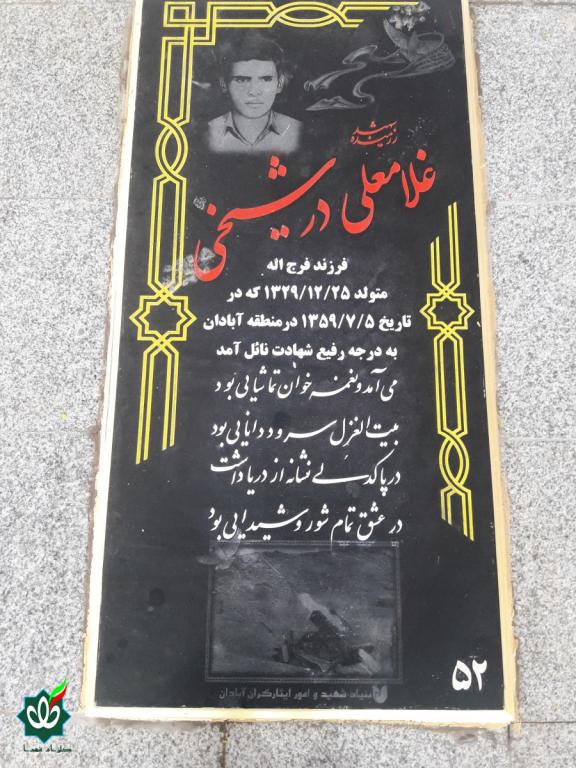 رزمنده شهید
غلامعلی در شیخی
فرزند فرج اله
متولد ۱۳۲۹/۱۲/۲۵ که در
تاریخ ۱۳۵۹/۷/۵ در منطقه آبادان
به درجه رفیع شهادت نائل آمد
می آمد و نغمه خوان تماشایی بود
بیت الغزل سرود دانایی بود
در پاکدلی نشانه از دریا داشت
در عشق تمام شور و شیدایی بود
بنیاد شهید و امور ایثارگران آبادان
۵۲